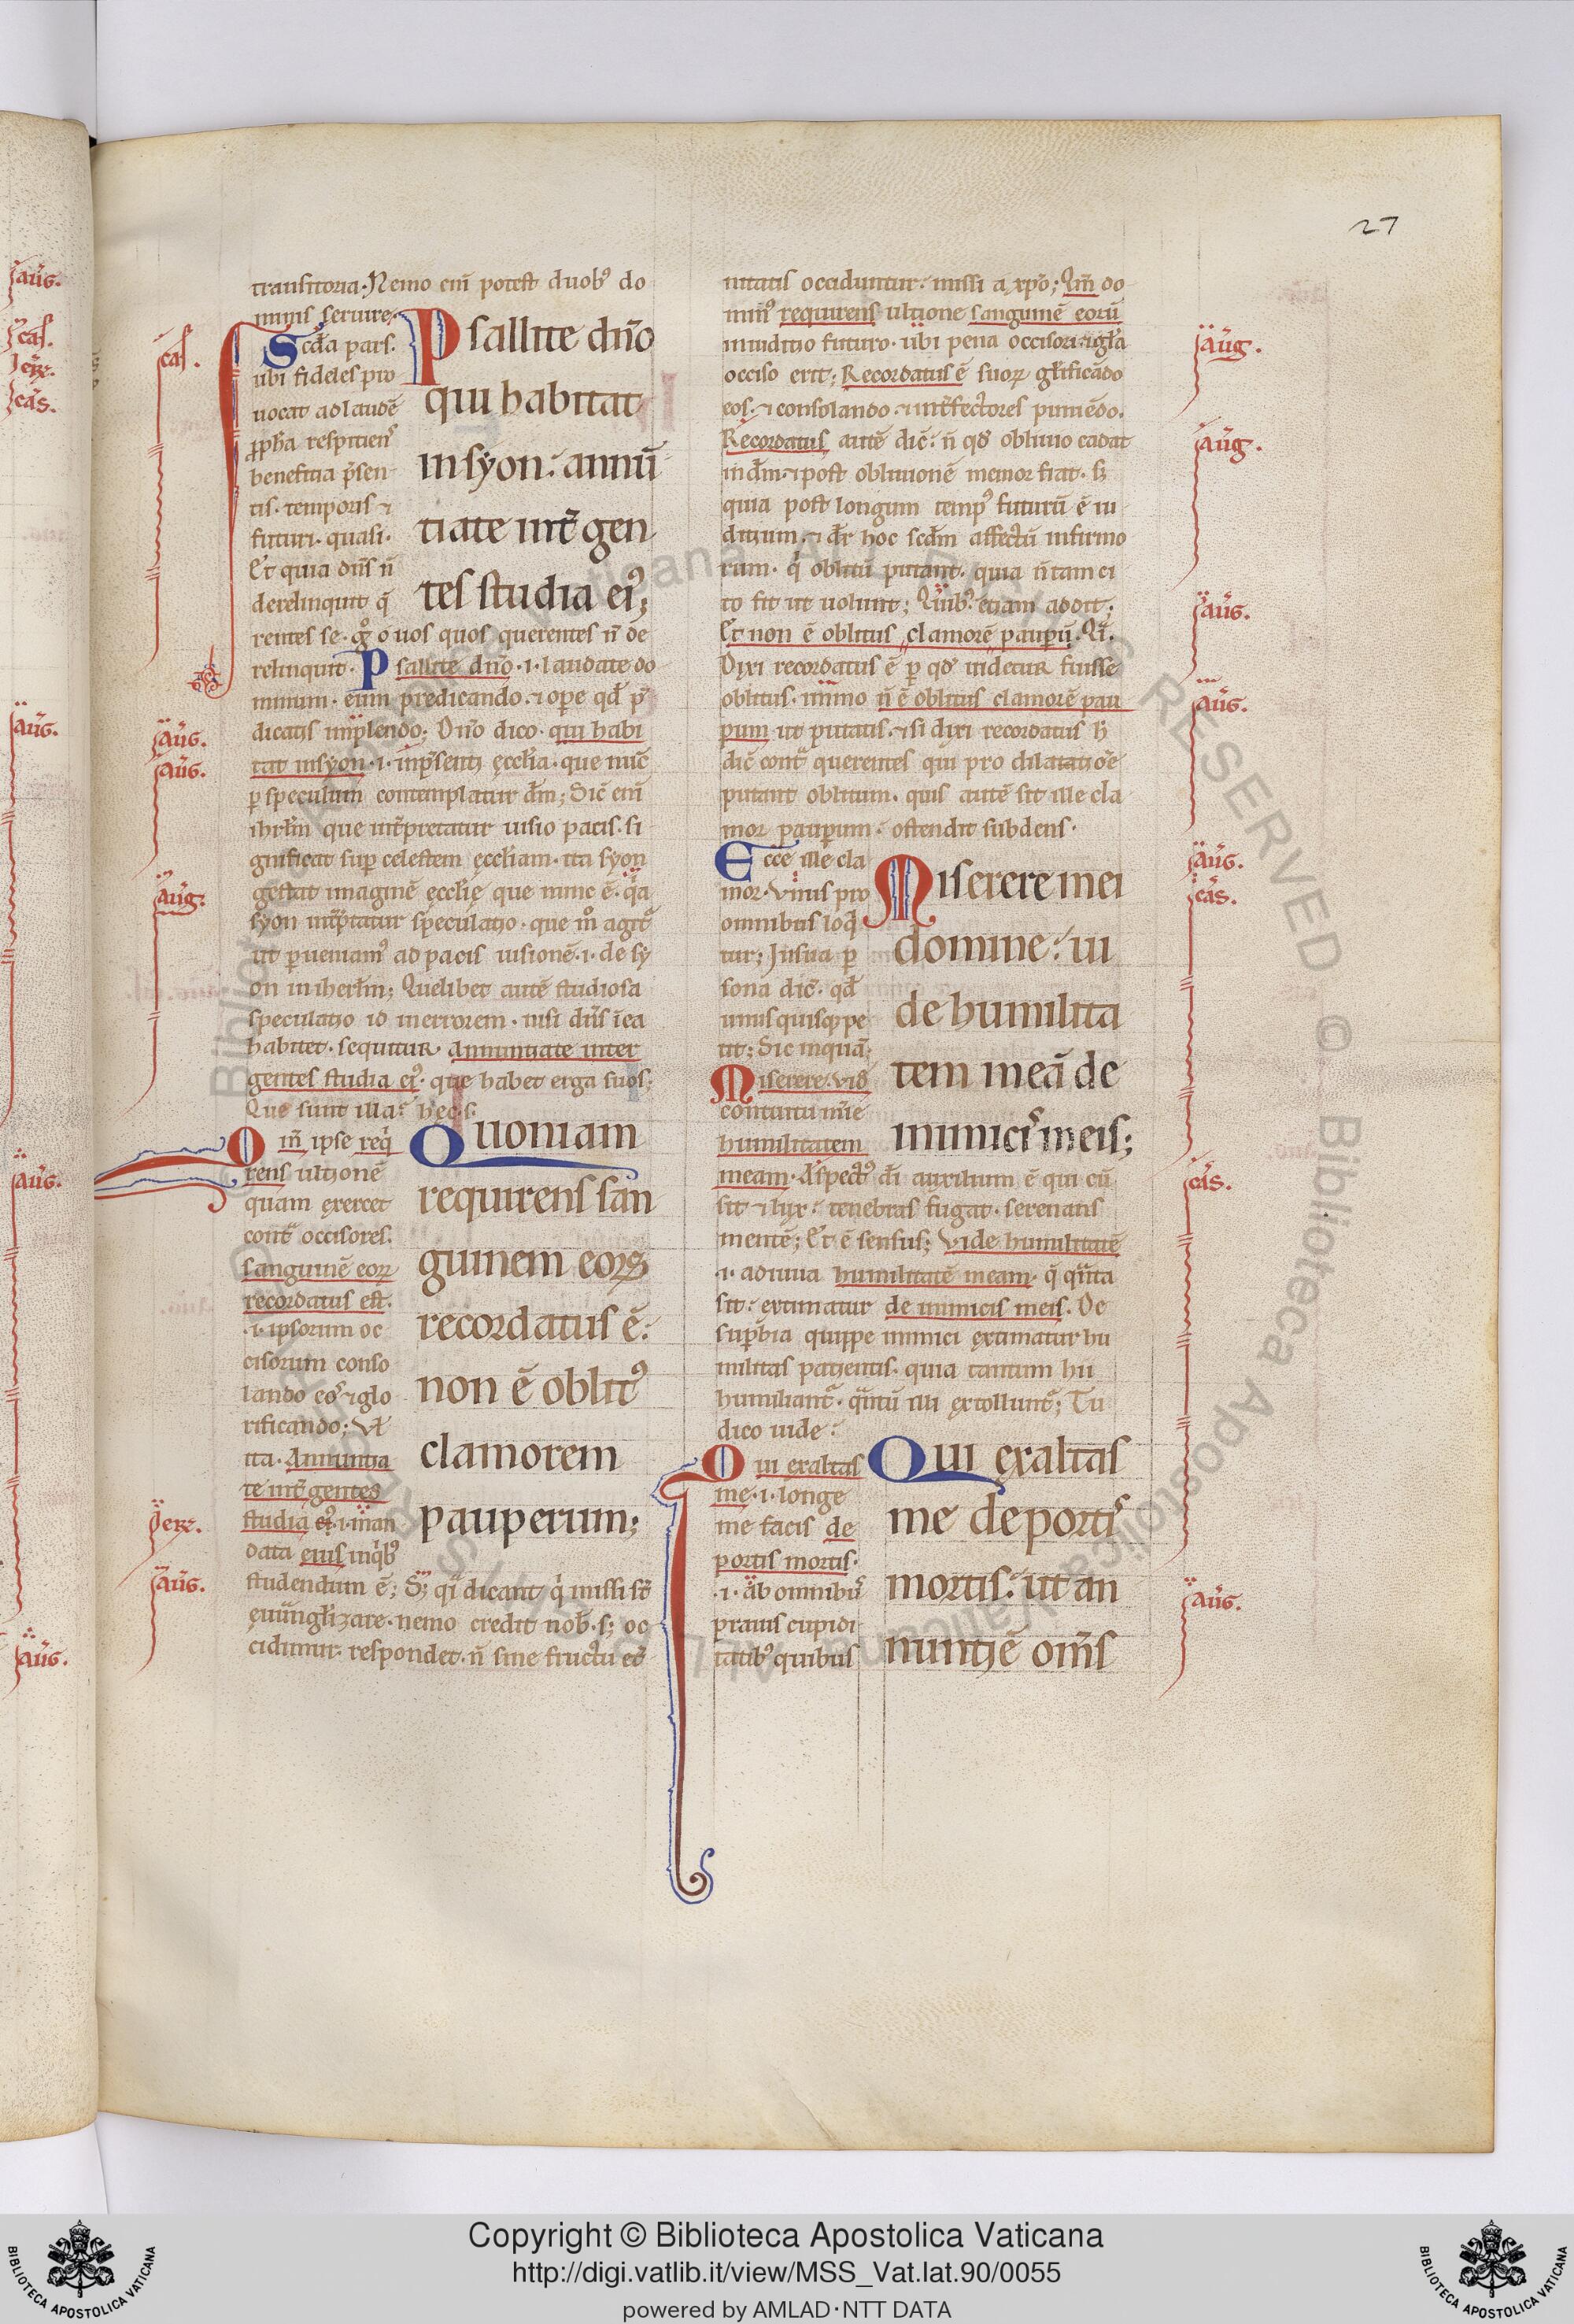 27
transitoria. Nemo eni̅ potest duobꝰ do
minis seruire.
Scd̅a pars.
ubi fideles pro
uocat ad laude̅
ꝓph̅a respiciens
beneficia p̅sen
tis temporis ⁊
futuri. quasi.
Et quia dn̅s n̅
derelinquit q̅
rentes se. g̊ o uos quos querentes n̅ de
relinquit. Psallite dn̅o .i. laudate do
minum. eum predicando. ⁊ ope qd̅ p̅
dicatis implendo; Dn̅o dico. qui habi
tat in syon .i. in p̅senti ęccl̅ia. que nu̅c
ꝑ speculum contemplatur dm̅; Sic eni̅
ihrl̅m que int̅pretatur uisio pacis. si
gnificat suꝑ celestem ęccl̅iam. ita syon
gestat imagine̅ ęccl̅ię que nunc e̅. q̅a
syon int̅p̅tatur speculatio. que m̊ agit᷑
ut ꝑueniamꝰ ad pacis uisione̅ .i. de sy
on in iherl̅m; Quelibet aute̅ studiosa
speculatio id in errorem. nisi dn̅s i̅ ea
habitet. sequitur. Annuntiate inter
gentes studia eiꝰ. que habet erga suos;
Que sunt illa? hęc .s.
Psallite dn̅o
qui habitat
in syon: annu̅
tiate int̅ gen
tes studia eiꝰ;
Qm̅ ipse req̇
rens ultione̅
quam exercet
cont̅ occisores.
sanguine̅ eoꝝ
recordatus est.
.i. ipsorum oc
cisorum conso
lando eos ⁊ glo
rificando; Vl̅
ita. Annuntia
te int̅ gentes
studia eiꝰ .i. man
data eius in q̇bꝰ
studendum e̅; S; q̅i dicant q̇ missi st̅
euangl̅izare. nemo credit nob̅. s; oc
cidimur. respondet. n̅ sine fructu
Quoniam
requirens san
guinem eoꝝ
recordatus e̅:
non e̅ oblitꝰ
clamorem
pauperum;
uitatis occiduntur. missi a xp̅o; Qm̅ do
minꝰ requirens ultione sanguine̅ eoru̅
in iuditio futuro. ubi pena occisori ⁊ gl̅a
occiso erit; Recordatus e̅ suoꝝ gl̅ificando
eos. ⁊ consolando. ⁊ int̅fectores punie̅do.
Recordatus aute̅ dic̅: n̅ qd̅ obliuio cadat
in dm̅. ⁊ post obliuione̅ memor fiat. s;
quia post longum tempꝰ futuru̅ e̅ iu
ditium. ⁊ dr̅ hoc scd̅m affectu̅ infirmo
rum. q̇ oblitu̅ putant. quia n̅ tam ci
to fit ut uolunt; Quibꝰ etiam addit;
Et non e̅ oblitus clamore̅ pauꝑu̅. Q̅i.
Dixi recordatus e̅ ꝑ qd̅ uidetur fuisse
oblitus. immo n̅ e̅ oblitus clamore̅ pau
ꝑum ut putatis. ⁊ si dixi recordatus h̅
dic̅ cont̅ querentes qui pro dilatatio̅e
putant oblitum. quis aute̅ sit ille cla
mor pauꝑum: ostendit subdens.
Ecce ille cla
mor. Vnus pro
omnibus loq̇
tur; In sua ꝑ
sona dic̅. qd̅
unusquisqꝫ pe
tit; Sic inqua̅;
Miserere. vid̅
contuitu mi̅e
humilitatem
meam. Aspectꝰ di̅ auxilium e̅ qui cu̅
sit ⁊ lux: tenebras fugat. serenatis
mente̅; Et e̅ sensus; Vide humilitate̅
.i. adiuua humilitate̅ meam. q̅ qn̅ta
sit: extimatur de inimicis meis. De
suꝑbia quippe inimici extimatur hu
militas patientis. quia tantum hu
humiliant᷑. qn̅tu̅ illi extollunt᷑; Tu
dico uide:
Miserere mei
domine: ui
de humilita
tem mea̅ de
inimicis meis;
Qui exaltas
me .i. longe
me facis de
portis mortis.
.i. ab omnibus
prauis cupidi
tatibꝰ quibus
Qui exaltas
me de portis
mortis: ut an
nuntie̅ om̅s
cas.
aug.
aug.
aug.
ier.
aug.
aug.
aug.
aug.
aug.
aug.
cas.
cas.
aug.
Copyright © Biblioteca Apostolica Vaticana
http://digi.vatlib.it/view/MSS_Vat.lat.90/0055
powered by AMLAD·NTT DATA
BIBLIOTECA APOSTOLICA VATICANA
BIBLIOTECA APOSTOLICA VATICANA